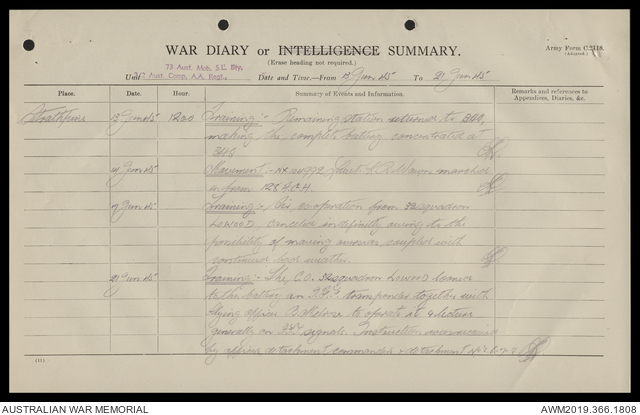 WAR DIARY or INTELLIGENCE SUMMARY.
(Erase heading not required).
Army Form C.2118.
(Adapted.)
73 Aust. Mob. S.L. Bty,
Unit 2 Aust. Comp. A.A. Regt.
Date and Time—From 13 Jun 45 To 21 Jun 45
Place.
Date.
Hour.
Summary of Events and Information.
Remarks and references to
Appendices, Diaries, &c.
13 Jun 45
1200
Training:- Remaining station returned to
making the complete battery concentrated at
14 Jun 45
Movement:- Lieut L.R. marched
in from 128 A.G.H.
17 Jun 45
Training:- Air co-operation from 32 squadron
LOWOOD, cancelled indefinitely owing to the
possibility of moving coupled with
continued bad weather.
21 Jun 45
Training:- The C.O. 32 squadron Lowood loaned
to this battery an I.F.F. transponder together with
Flying officer to operate it & lecture
generally on I.F.F. signals. Instruction
by officers, detachment commanders & detachment
AUSTRALIAN WAR MEMORIAL
AWM2019.366.1808